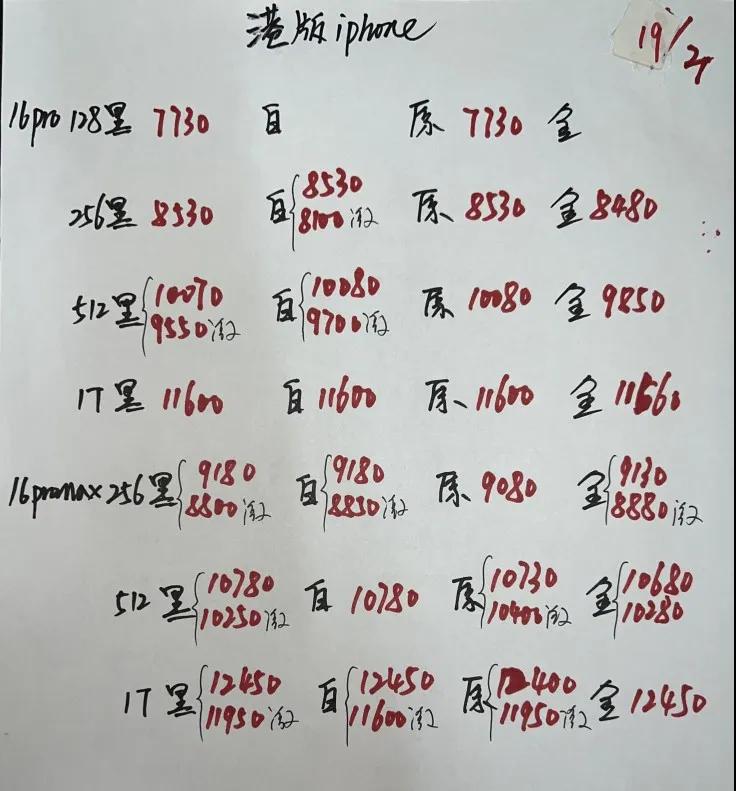 港版iphone
19/2
16pro 128黑 7730 白 原 7730 金
256黑 8530 白 8530 8100激 原 8530 金 8480
512黑 10070 9550激 白 10080 9700激 原 10080 金 9850
1T黑 11600 白 11600 原 11600 金 11560
16promax 256黑 9180 8800激 白 9180 8830激 原 9080 金 9130 8880激
512黑 10780 10250激 白 10780 原 10730 10400激 金 10680 10280
1T黑 12450 11950激 白 12450 11600激 原 12400 11950激 金 12450